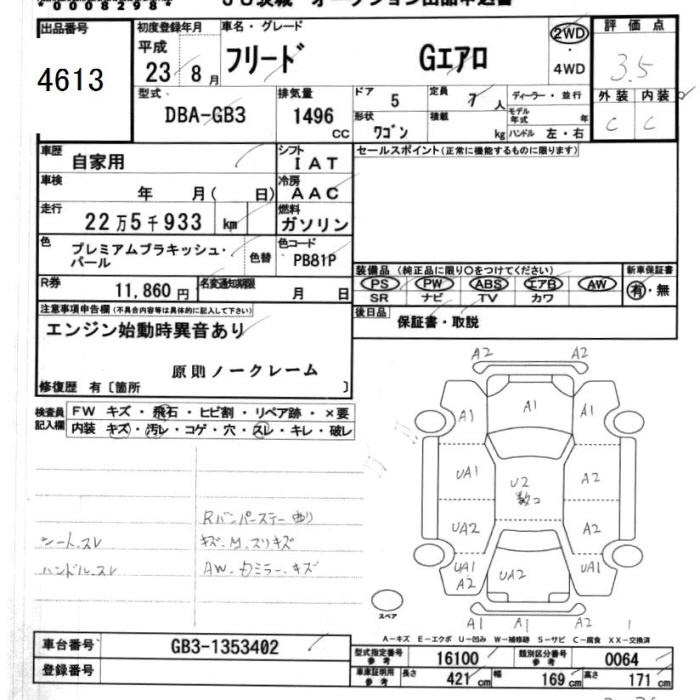 00082984 JU茨城 オークション出品申込書
出品番号 初度登録年月 車名・グレード 評価点
4613 平成 23年 8月 フリード Gエアロ 2WD・4WD 3.5
型式 排気量 ドア 定員 ディーラー・並行 外装 内装
DBA-GB3 1496 CC 5 7人 モデル年式 年 C C
形状 ワゴン 積載 kg ハンドル 左・右
車歴 自家用 シフト IAT セールスポイント(正常に機能するものに限ります)
車検 年 月( 日) 冷房 AAC
走行 22万5千933 km 燃料 ガソリン
色 プレミアムブラキッシュ・パール 色替 色コード PB81P
装備品(純正品に限り○をつけてください) 新車保証書
R券 11,860円 名変通知期限 月 日 PS PW ABS エアB AW 有・無
SR ナビ TV カワ
注意事項申告欄(不具合内容等は具体的に記入して下さい) 後日品 保証書・取説
エンジン始動時異音あり
原則ノークレーム
修復歴 有〔箇所 〕
検査員記入欄 FW キズ・飛石・ヒビ割・リペア跡・×要
内装 キズ・汚レ・コゲ・穴・スレ・キレ・破レ
A2 A2
A1 A1 A1
UA1 U2 A2
UA2 A2
UA1 A2 UA2 UA1
A1 A1 A2
Rバンパーステー曲り
シート.スレ キズ.M.スリキズ
ハンドル.スレ AW.カミラー.キズ
スペア
A-キズ E-エクボ U-凹み W-補修跡 S-サビ C-腐食 XX-交換済
車台番号 GB3-1353402 型式指定番号 参考 16100 類別区分番号 参考 0064
登録番号 車庫証明用 参考 長さ 421cm 幅 169cm 高さ 171cm